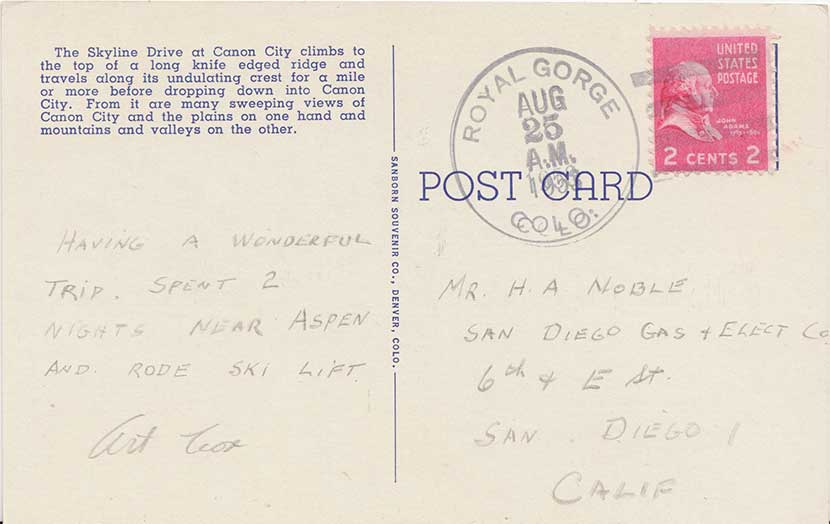 The Skyline Drive at Canon City climbs to
the top of a long knife edged ridge and
travels along its undulating crest for a mile
or more before dropping down into Canon
City. From it are many sweeping views of
Canon City and the plains on one hand and
mountains and valleys on the other.
HAVING A WONDERFUL
TRIP. SPENT 2
NIGHTS NEAR ASPEN
AND RODE SKI LIFT
Art Cox
SANBORN SOUVENIR CO., DENVER, COLO.
ROYAL GORGE
AUG
25
A.M.
1953
COLO.
UNITED
STATES
POSTAGE
JOHN
ADAMS
2 CENTS 2
POST CARD
MR. H. A NOBLE
SAN DIEGO GAS & ELECT Co
6th & E St.
SAN DIEGO 1
CALIF